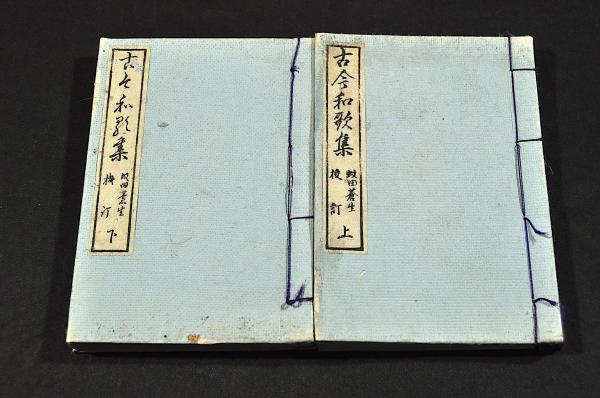 古今和歌集
蚊田蒼生
校訂
上
古今和歌集
蚊田蒼生
校訂
下